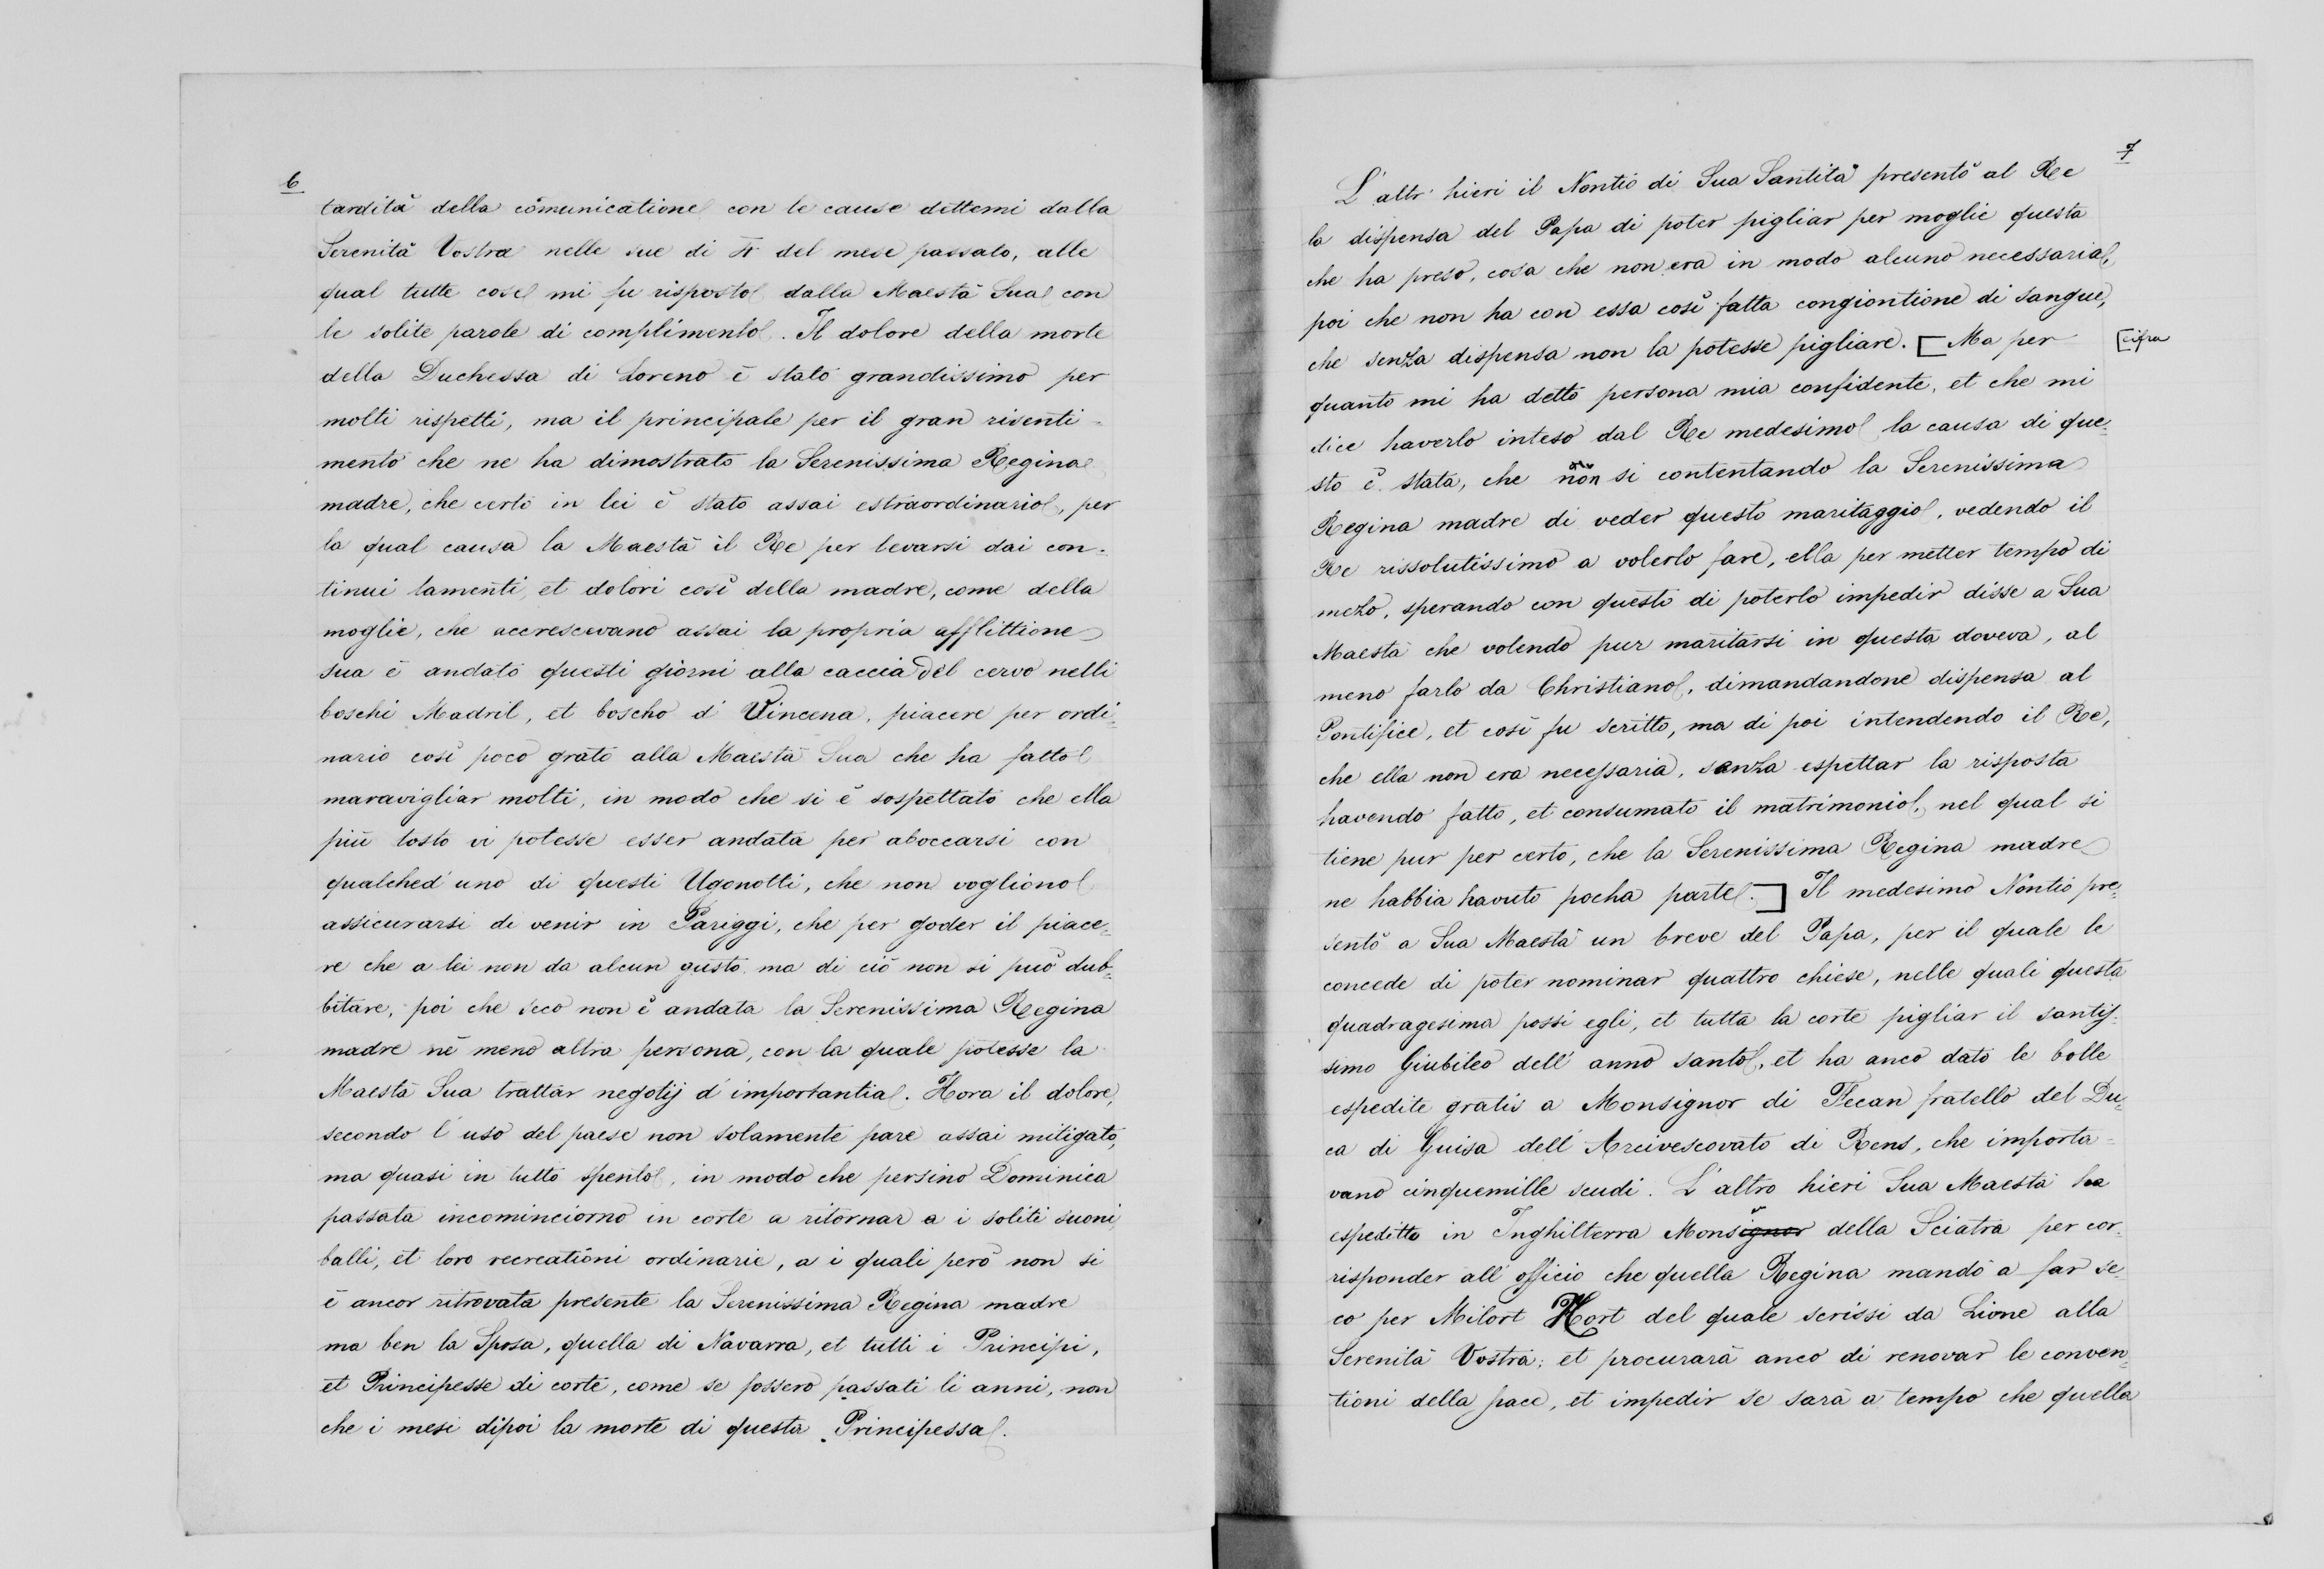 6
tardità della cõmunicatione con le cause dittemi dalla
Serenità Vostra nelle sue di π del mese passato, alle
qual tutte cose mi fu risposto dalla Maestà Sua con
le solite parole di complimento. Il dolore della morte
della Duchessa di Loreno è stato grandissimo per
molti rispetti, ma il principale per il gran risenti-
mento che ne ha dimostrato la Serenissima Regina
madre, che certo in lei è stato assai estraordinario, per
la qual causa la Maestà il Re per levarsi dai con-
tinui lamenti, et dolori così della madre, come della
moglie, che accrescevano assai la propria afflittione
sua è andato questi giorni alla caccia del cervo nelli
boschi Madril, et boscho d'Vincena, piacere per ordi-
nario così poco grato alla Maestà Sua che ha fatto
maravigliar molti, in modo che si è sospettato che ella
più tosto vi potesse esser andata per aboccarsi con
qualched'uno di questi Ugonotti, che non vogliono
assicurarsi di venir in Pariggi, che per goder il piace-
re che a lei non da alcun gusto, ma di ciò non si può dub-
bitare, poi che seco non è andata la Serenissima Regina
madre nè meno altra persona, con la quale potesse la
Maestà Sua trattar negotij d'importantia. Hora il dolore,
secondo l'uso del paese non solamente pare assai mitigato,
ma quasi in tutto spento, in modo che persino Dominica
passata incominciorno in corte a ritornar a i soliti suoni,
balli, et loro recreationi ordinarie, a i quali però non si
è ancor ritrovata presente la Serenissima Regina madre
ma ben la Sposa, quella di Navarra, et tutti i Principi,
et Principesse di corte, come se fossero passati li anni, non
che i mesi dipoi la morte di questa Principessa.
7
L'altr'hieri il Nontio di Sua Santità presentò al Re
la dispensa del Papa di poter pigliar per moglie questa
che ha preso, cosa che non era in modo alcuno necessaria,
poi che non ha con essa così fatta congiontione di sangue,
che senza dispensa non la potesse pigliare. [ Ma per
[cifra
quanto mi ha detto persona mia confidente, et che mi
dice haverlo inteso dal Re medesimo la causa di que-
sto è stata, che non si contentando la Serenissima
Regina madre di veder questo maritaggio, vedendo il
Re rissolutissimo a volerlo fare, ella per metter tempo di
mezo, sperando con questo di poterlo impedir disse a Sua
Maestà che volendo pur maritarsi in questa doveva, al
meno farlo da Christiano, dimandandone dispensa al
Pontifice, et così fu scritto, ma di poi intendendo il Re,
che ella non era necessaria, senza espettar la risposta
havendo fatto, et consumato il matrimonio, nel qual si
tiene pur per certo, che la Serenissima Regina madre
ne habbia havuto pocha parte. ] Il medesimo Nontio pre-
sentò a Sua Maestà un breve del Papa, per il quale le
concede di poter nominar quattro chiese, nelle quali questa
quadragesima possi egli, et tutta la corte pigliar il santis-
simo Giubileo dell'anno santo, et ha anco dato le bolle
espedite gratis a Monsignor di Fecan fratello del Du-
ca di Guisa dell'Arcivescovato di Rens, che importa-
vano cinquemille scudi. L'altro hieri Sua Maestà ha
espeditto in Inghilterra Monsignor della Sciatra per cor-
risponder all'officio che quella Regina mandò a far se-
co per Milort Hort del quale scrissi da Lione alla
Serenità Vostra; et procurarà anco di renovar le conven-
tioni della pace, et impedir se sarà a tempo che quella